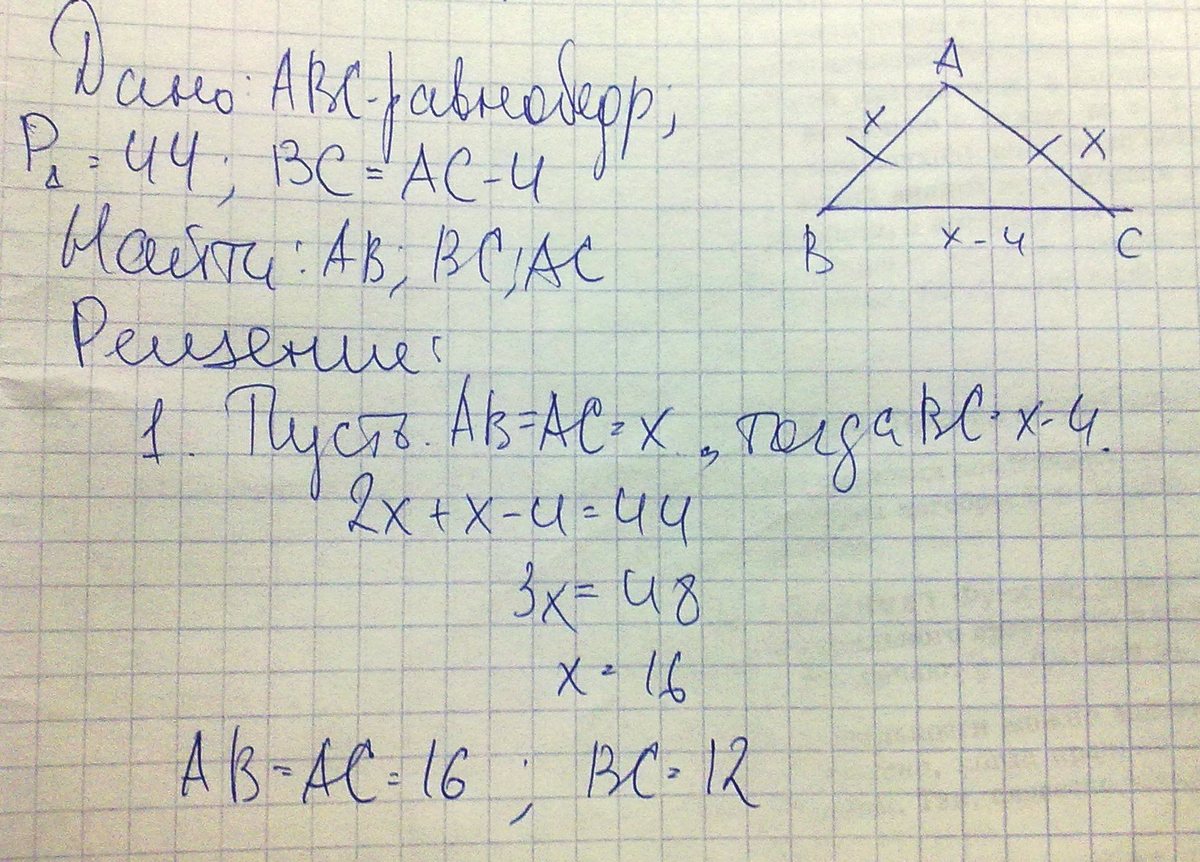 Дано: ABC-равнобедр;
P△ = 44; BC = AC-4
Найти: AB; BC; AC
Решение:
1. Пусть. AB=AC=x, тогда BC=x-4.
2x+x-4=44
3x=48
x=16
AB=AC=16; BC=12
A
x
x
B
x-4
C